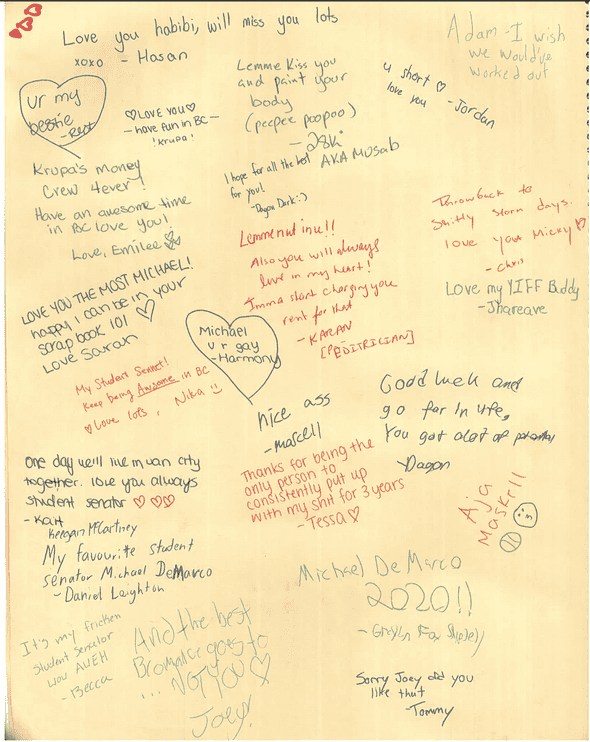 Love you habibi, will miss you lots
xoxo - Hasan
Adam - I wish
we would've
worked out
ur my
bestie
♡LOVE YOU♡
- have fun in BC -
'Krupa'
Lemme Kiss you
and paint your
body
(peepee poopoo)
AKA Musab
u short ♡
love you
- Jordan
Krupa's money
Crew 4ever!
Have an awesome time
in BC love you!
Love, Emilee
I hope for all the best
for you!
Lemme nut in u!!
Also you will always
live in my heart!
Imma start charging you
rent for that
- KARAN
[PEDITRILIAN]
Throwback to
Shitty storm days.
love you Micky ♡
- Chris
Love my YIFF Buddy
- Jhareave
LOVE YOU THE MOST MICHAEL!
happy I can be in your
scrap book 101 ♡
Love Sarah
Michael
u r gay
- Harmony
My Student Sennet!
Keep being Awesome in BC
♡Love lots, Nika :)
nice ass
- marcell
Good luck and
go far in life,
You got alot of potential
Dagon
One day we'll live in van city
together. love you always
student senator ♡♡♡
- Kait
Keegan McCartney
Thanks for being the
only person to
consistently put up
with my shit for 3 years
- Tessa♡
Aja
Maskrll
My favourite student
senator Michael DeMarco
- Daniel Leighton
Michael DeMarco
2020!!
It's my fricken
student senator
wow AUEH
- Becca
And the best
Bromance goes to
... NOT YOU ♡
Joey!
Sorry Joey did you
like that
- Tommy